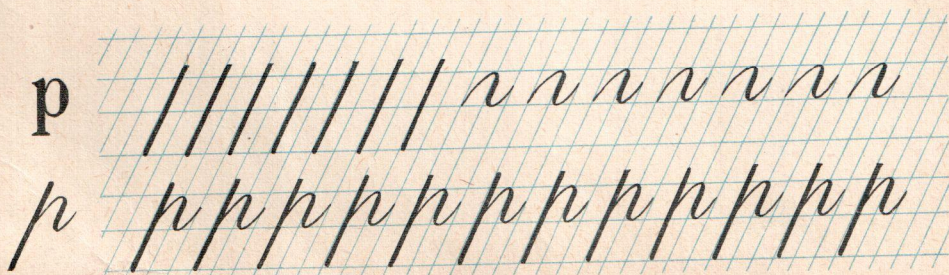 р
р р р р р р р р р р р р р